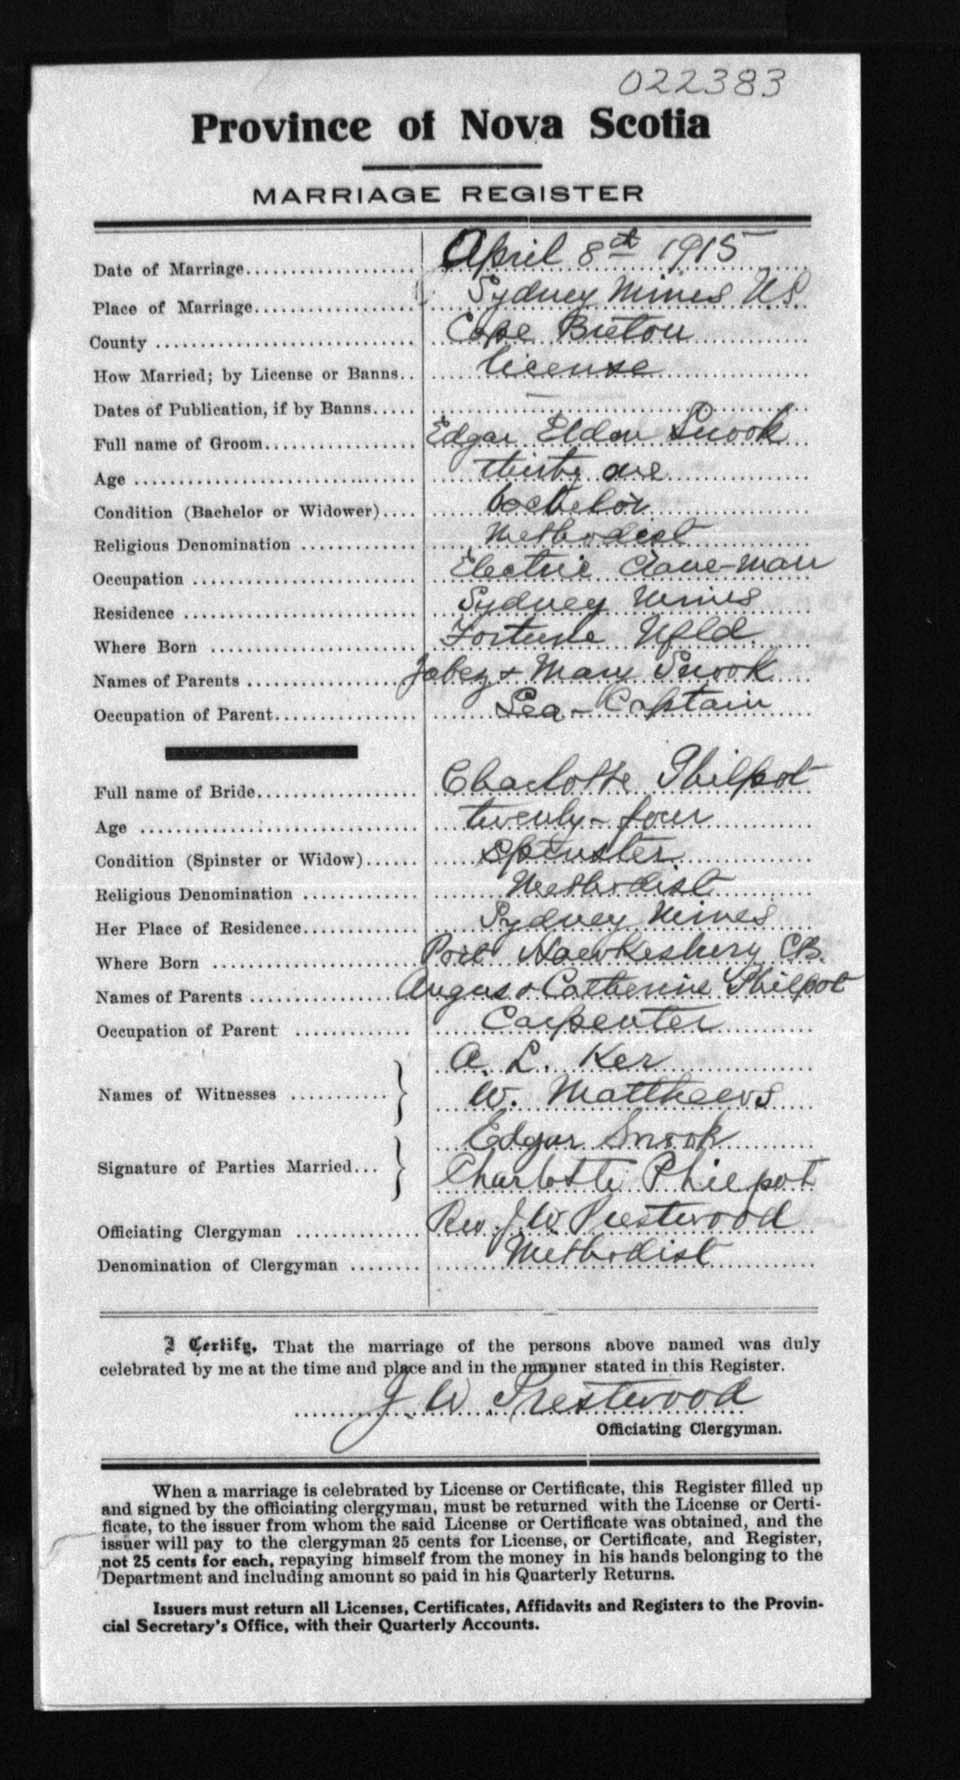 022383
Province of Nova Scotia
MARRIAGE REGISTER
Date of Marriage................... April 8th 1915
Place of Marriage.................. Sydney Mines N.S.
County ............................. Cape Breton
How Married; by License or Banns.. license
Dates of Publication, if by Banns..... —
Full name of Groom................. Edgar Eldon Snook
Age ................................ thirty one
Condition (Bachelor or Widower).... bachelor
Religious Denomination ............. Methodist
Occupation ......................... Electric Crane-man
Residence .......................... Sydney Mines
Where Born ........................ Fortune Nfld.
Names of Parents ................... Jabez & Mary Snook
Occupation of Parent................ Sea-Captain
Full name of Bride.................. Charlotte Philpot
Age ............................... twenty-four
Condition (Spinster or Widow)...... Spinster
Religious Denomination ............. Methodist
Her Place of Residence............. Sydney Mines
Where Born ........................ Port Hawkesbury CB.
Names of Parents ................... Angus & Catherine Philpot
Occupation of Parent ............. Carpenter
A. L. Ker
Names of Witnesses ........... } W. Matthews
Edgar Snook
Signature of Parties Married... } Charlotte Philpot
Officiating Clergyman .............. Rev. J. W. Prestwood
Denomination of Clergyman ........ Methodist
I Certify, That the marriage of the persons above named was duly
celebrated by me at the time and place and in the manner stated in this Register.
J. W. Prestwood
Officiating Clergyman.
When a marriage is celebrated by License or Certificate, this Register filled up
and signed by the officiating clergyman, must be returned with the License or Certi-
ficate, to the issuer from whom the said License or Certificate was obtained, and the
issuer will pay to the clergyman 25 cents for License, or Certificate, and Register,
not 25 cents for each, repaying himself from the money in his hands belonging to the
Department and including amount so paid in his Quarterly Returns.
Issuers must return all Licenses, Certificates, Affidavits and Registers to the Provin-
cial Secretary's Office, with their Quarterly Accounts.